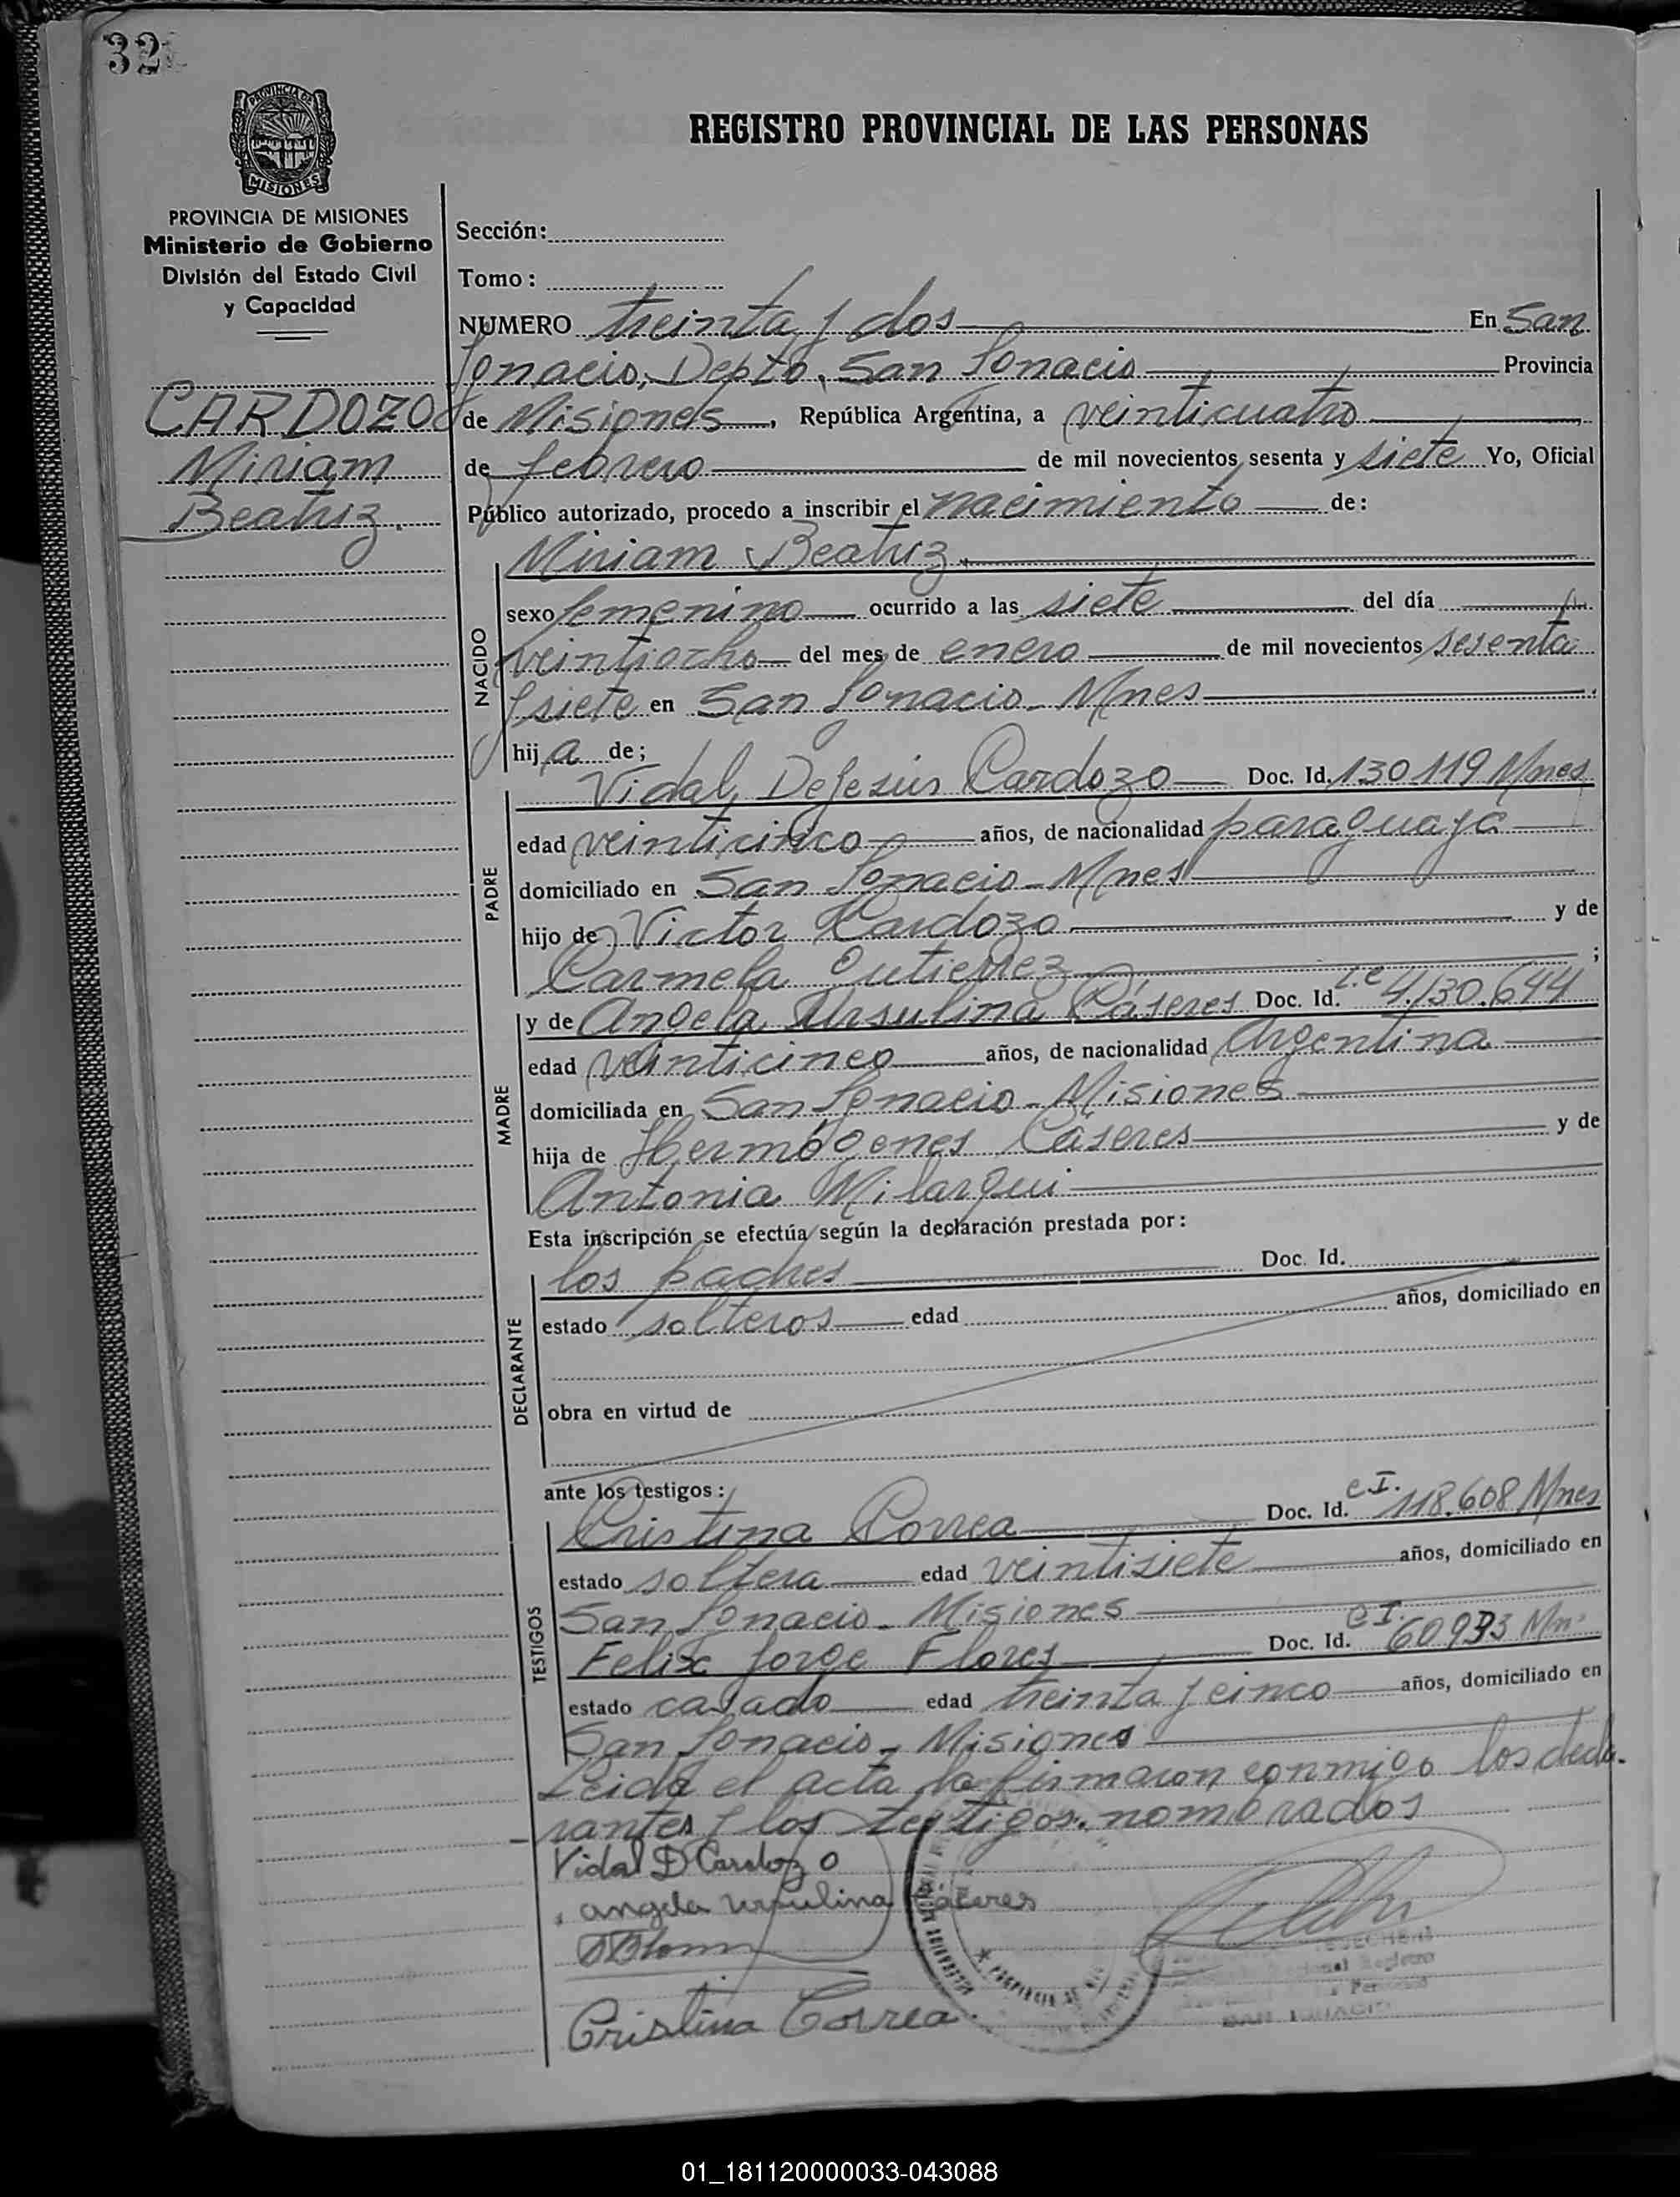 32
PROVINCIA DE
MISIONES
REGISTRO PROVINCIAL DE LAS PERSONAS
PROVINCIA DE MISIONES
Ministerio de Gobierno
División del Estado Civil
y Capacidad
CARDOZO
Miriam
Beatriz.
Sección:
Tomo:
NUMERO treinta y dos En San
Ignacio, Depto. San Ignacio Provincia
de Misiones, República Argentina, a veinticuatro
de febrero de mil novecientos sesenta y siete Yo, Oficial
Público autorizado, procedo a inscribir el nacimiento de:
NACIDO
Miriam Beatriz.
sexo femenino ocurrido a las siete del día
veintiocho del mes de enero de mil novecientos sesenta
y siete en San Ignacio - Mnes
hija de;
PADRE
Vidal DeJesús Cardozo Doc. Id. 130119 Mnes
edad veinticinco años, de nacionalidad paraguaya
domiciliado en San Ignacio - Mnes
hijo de Victor Cardozo y de
Carmela Gutierrez ;
MADRE
y de Angela Ursulina Cáseres Doc. Id. L.C 4.130.644
edad veinticinco años, de nacionalidad Argentina
domiciliada en San Ignacio - Misiones
hija de Hermógenes Cáseres y de
Antonia Milarqui
Esta inscripción se efectúa según la declaración prestada por:
DECLARANTE
los padres Doc. Id.
estado solteros edad años, domiciliado en
obra en virtud de
ante los testigos:
TESTIGOS
Cristina Correa Doc. Id. C.I. 118.608 Mnes
estado soltera edad veintisiete años, domiciliado en
San Ignacio - Misiones
Felix Jorge Flores Doc. Id. C.I. 60933 Mn
estado casado edad treinta y cinco años, domiciliado en
San Ignacio - Misiones
Leida el acta la firmaron conmigo los decla-
rantes y los testigos nombrados
Vidal D Cardozo
angela ursulina Cáceres
Cristina Correa
SAN IGNACIO
01_181120000033-043088